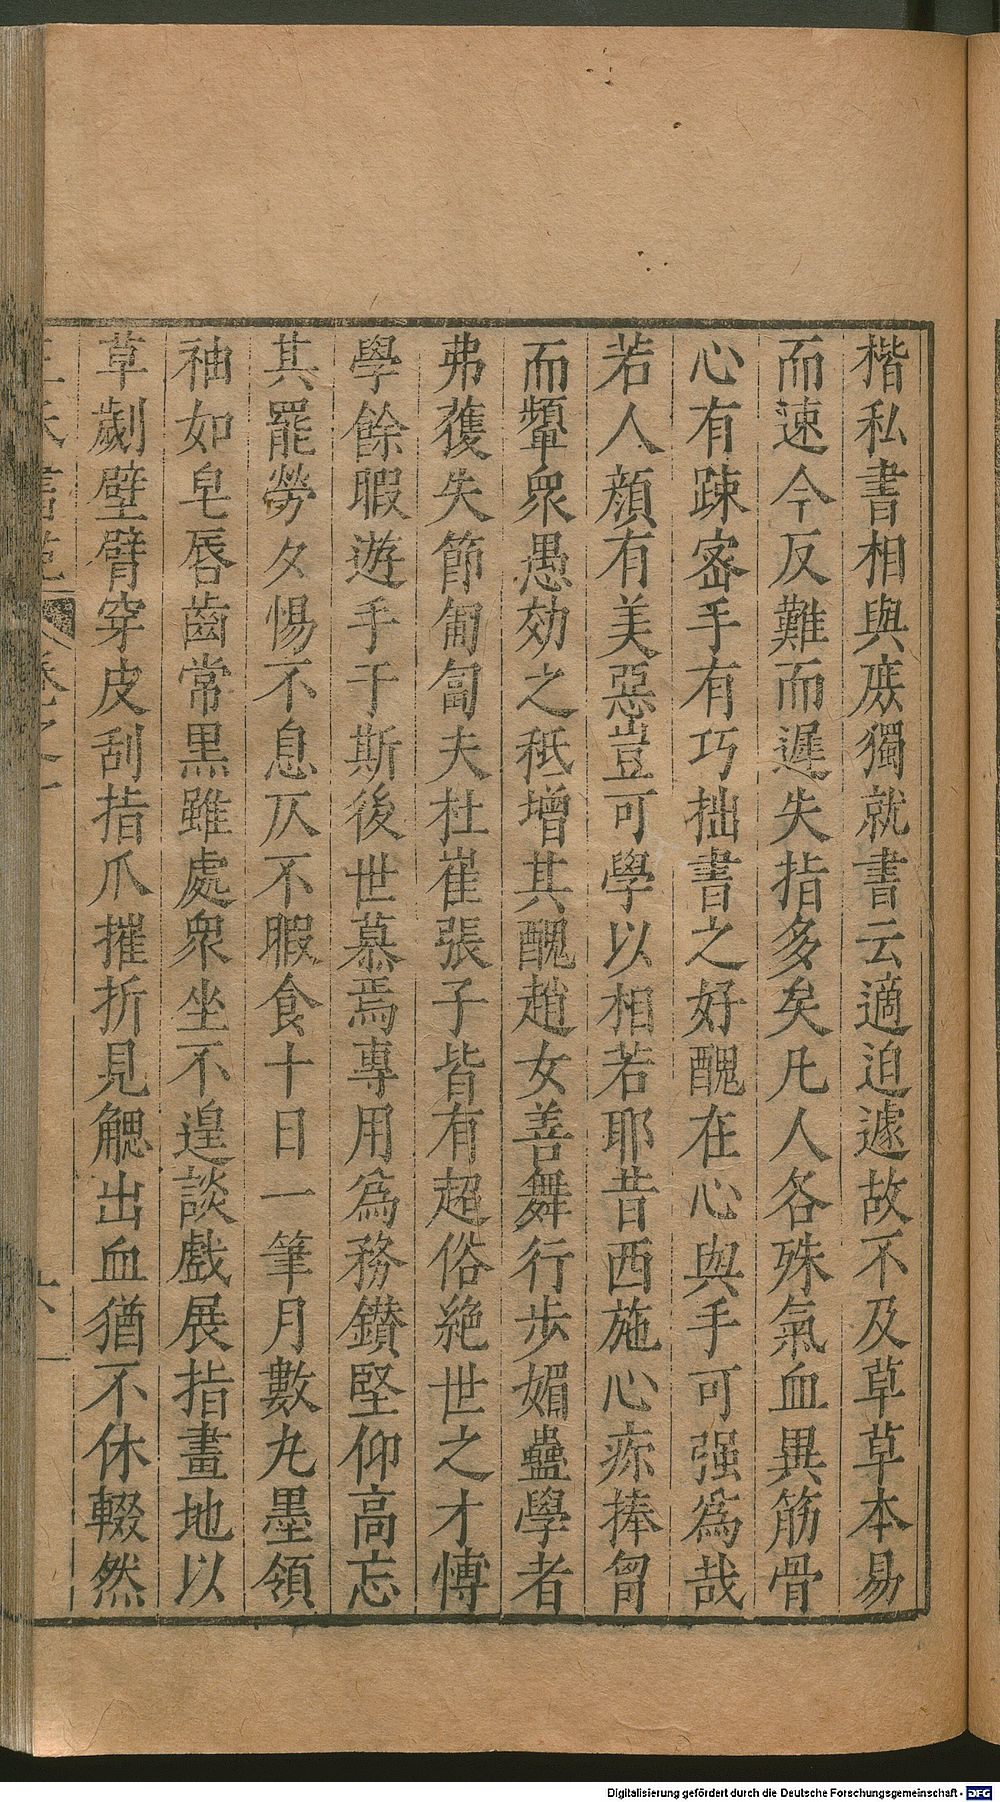 楷私書相與庻獨就書云適迫遽故不及草草本易
而速今反難而遲失指多矣凡人各殊氣血異筋骨
心有踈密手有巧拙書之好醜在心與手可强爲哉
若人顔有美惡豈可學以相若耶昔西施心疹捧胷
而顰衆愚効之秪增其醜趙女善舞行步媚蠱學者
弗獲失節匍匐夫杜崔張子皆有超俗絶世之才慱
學餘暇遊手于斯後世慕焉專用爲務鑚堅仰高忘
其罷勞夕惕不息仄不暇食十日一筆月數丸墨領
袖如皂唇齒常黒雖處衆坐不遑談戲展指畫地以
草劌壁臂穿皮刮指爪摧折見鰓出血猶不休輟然
卷之一
六
Digitalisierung gefördert durch die Deutsche Forschungsgemeinschaft - DFG